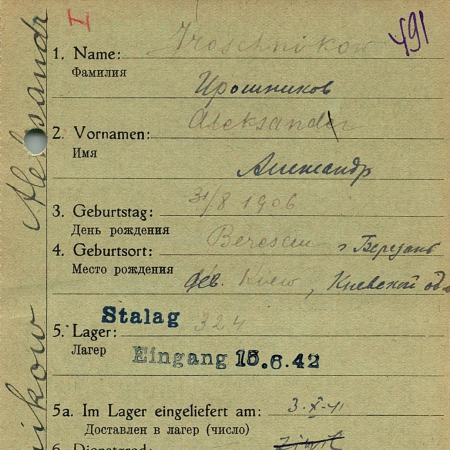 I
491
1. Name: Iroschnikow
Фамилия
Ирошников
2. Vornamen: Aleksandr
Имя
Александр
3. Geburtstag: 31/8 1906
День рождения
4. Geburtsort: Beresan г Березань
Место рождения Geb. Kiew, Киевской обл
Stalag
5. Lager: 324
Лагер Eingang 15.6.42
5a. Im Lager eingeliefert am: 3.X.41
Доставлен в лагер (число)
6. Dienstgrad:
Aleksandr